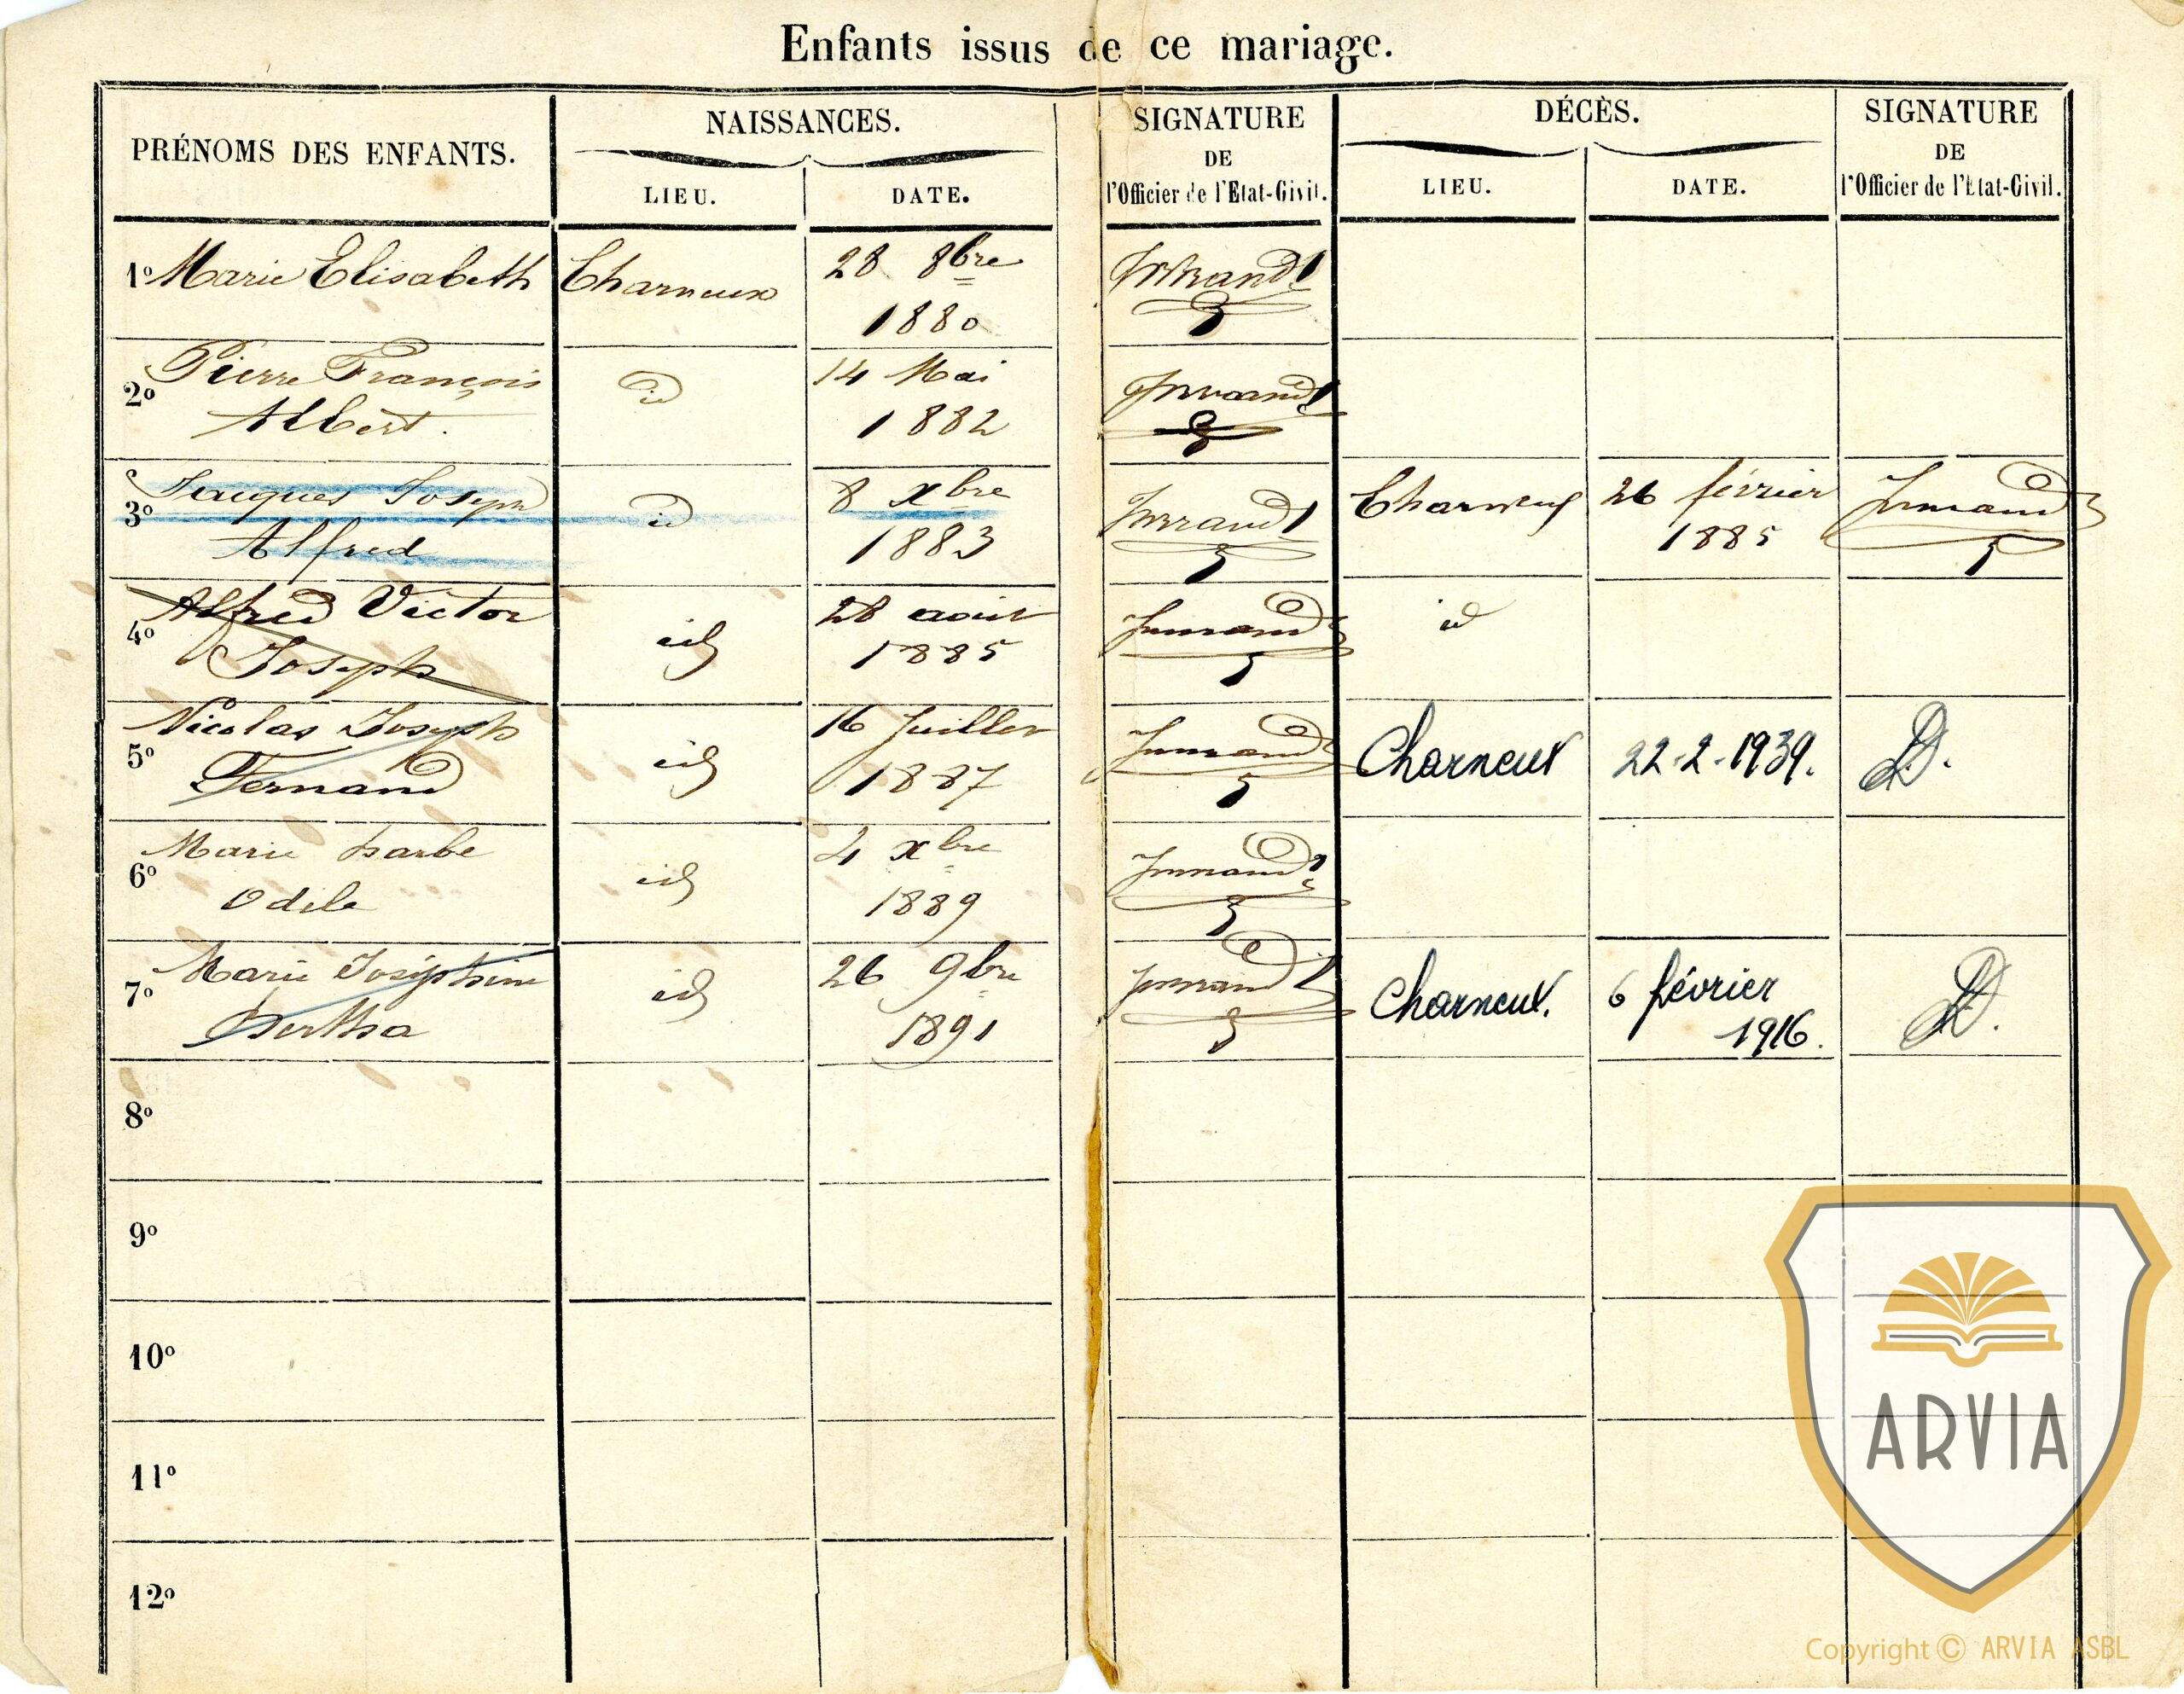 Enfants issus de ce mariage.
PRÉNOMS DES ENFANTS.
NAISSANCES.
LIEU.
DATE.
SIGNATURE
DE
l'Officier de l'Etat-Civil.
DÉCÈS.
LIEU.
DATE.
SIGNATURE
DE
l'Officier de l'Etat-Civil.
1º Marie Elisabeth Charneux 28 8bre
1880
2º Pierre François id 14 Mai
Albert. 1882
3º Jacques Joseph id 8 xbre Charneux 26 février
Alfred 1883 1885
4º Alfred Victor id 28 août id
Joseph 1885
5º Nicolas Joseph id 16 Juillet Charneux 22-2-1939. D.
Fernand 1887
6º Marie barbe id 4 xbre
Odile 1889
7º Marie Joséphine id 26 9bre Charneux. 6 février D.
Bertha 1891 1916.
8º
9º
10º
11º
12º
ARVIA
Copyright © ARVIA ASBL